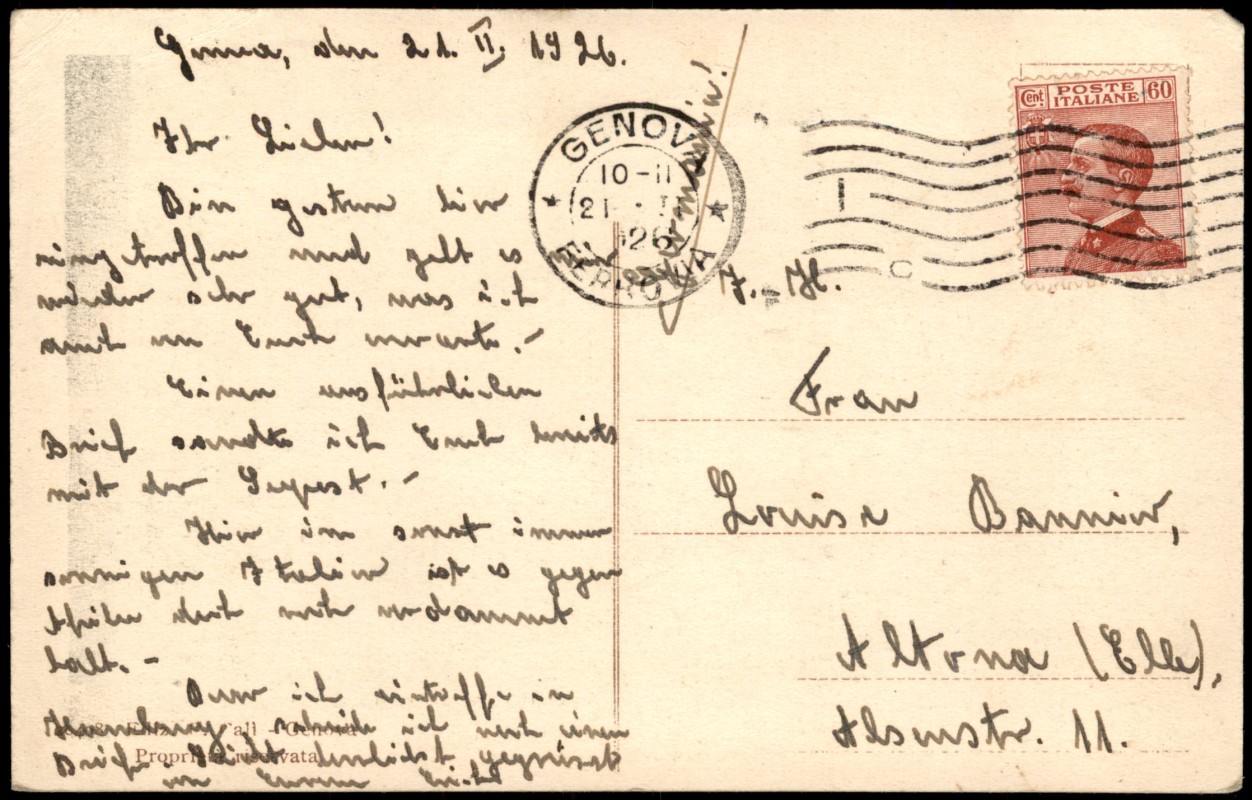 Genua, den 21. II. 1926.
Ihr Lieben!
Bin gestern hier
eingetroffen und geht es mir
wieder sehr gut, was ich
auch von Euch erwarte. -
Einen ausführlichen
Brief sandte ich Euch bereits
mit der Seepost. -
Hier im sonst immer
sonnigen Italien ist es gegen
doch noch verdammt
kalt. -
ich eintreffe in
Hamburg schreibe ich noch einen
Brief Seid herzlichst gegrüsst
von Eurem
GENOVA
10-11
21
1926
FERROVIA
Germania!
Cent POSTE ITALIANE 60
Frau
Louise Bannier,
Altona (Elbe),
Alsenstr. 11.
Calì - Genova
Proprietà riservata